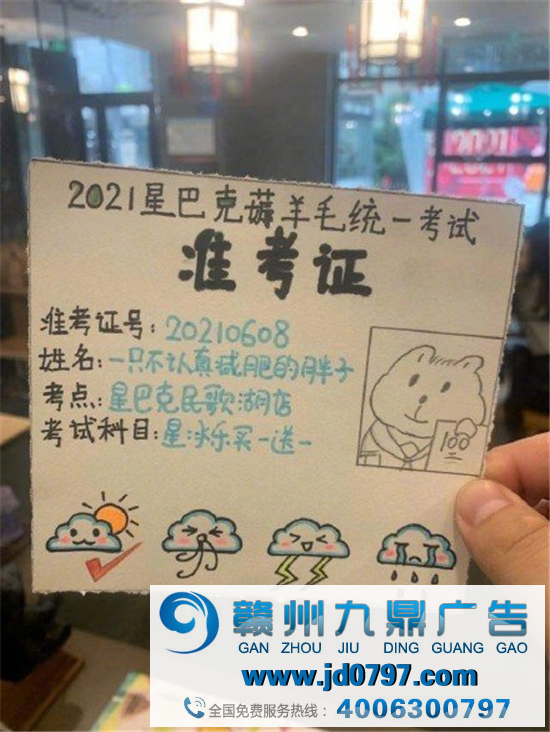 2021
2021星巴克薅羊毛统一考试
准考证
准考证号:20210608
姓名:一只不认真减肥的胖子
考点:星巴克民歌湖店
考试科目:星冰乐买一送一
100
赣州九鼎广告
GAN ZHOU JIU DING GUANG GAO
www.jd0797.com
全国免费服务热线:4006300797